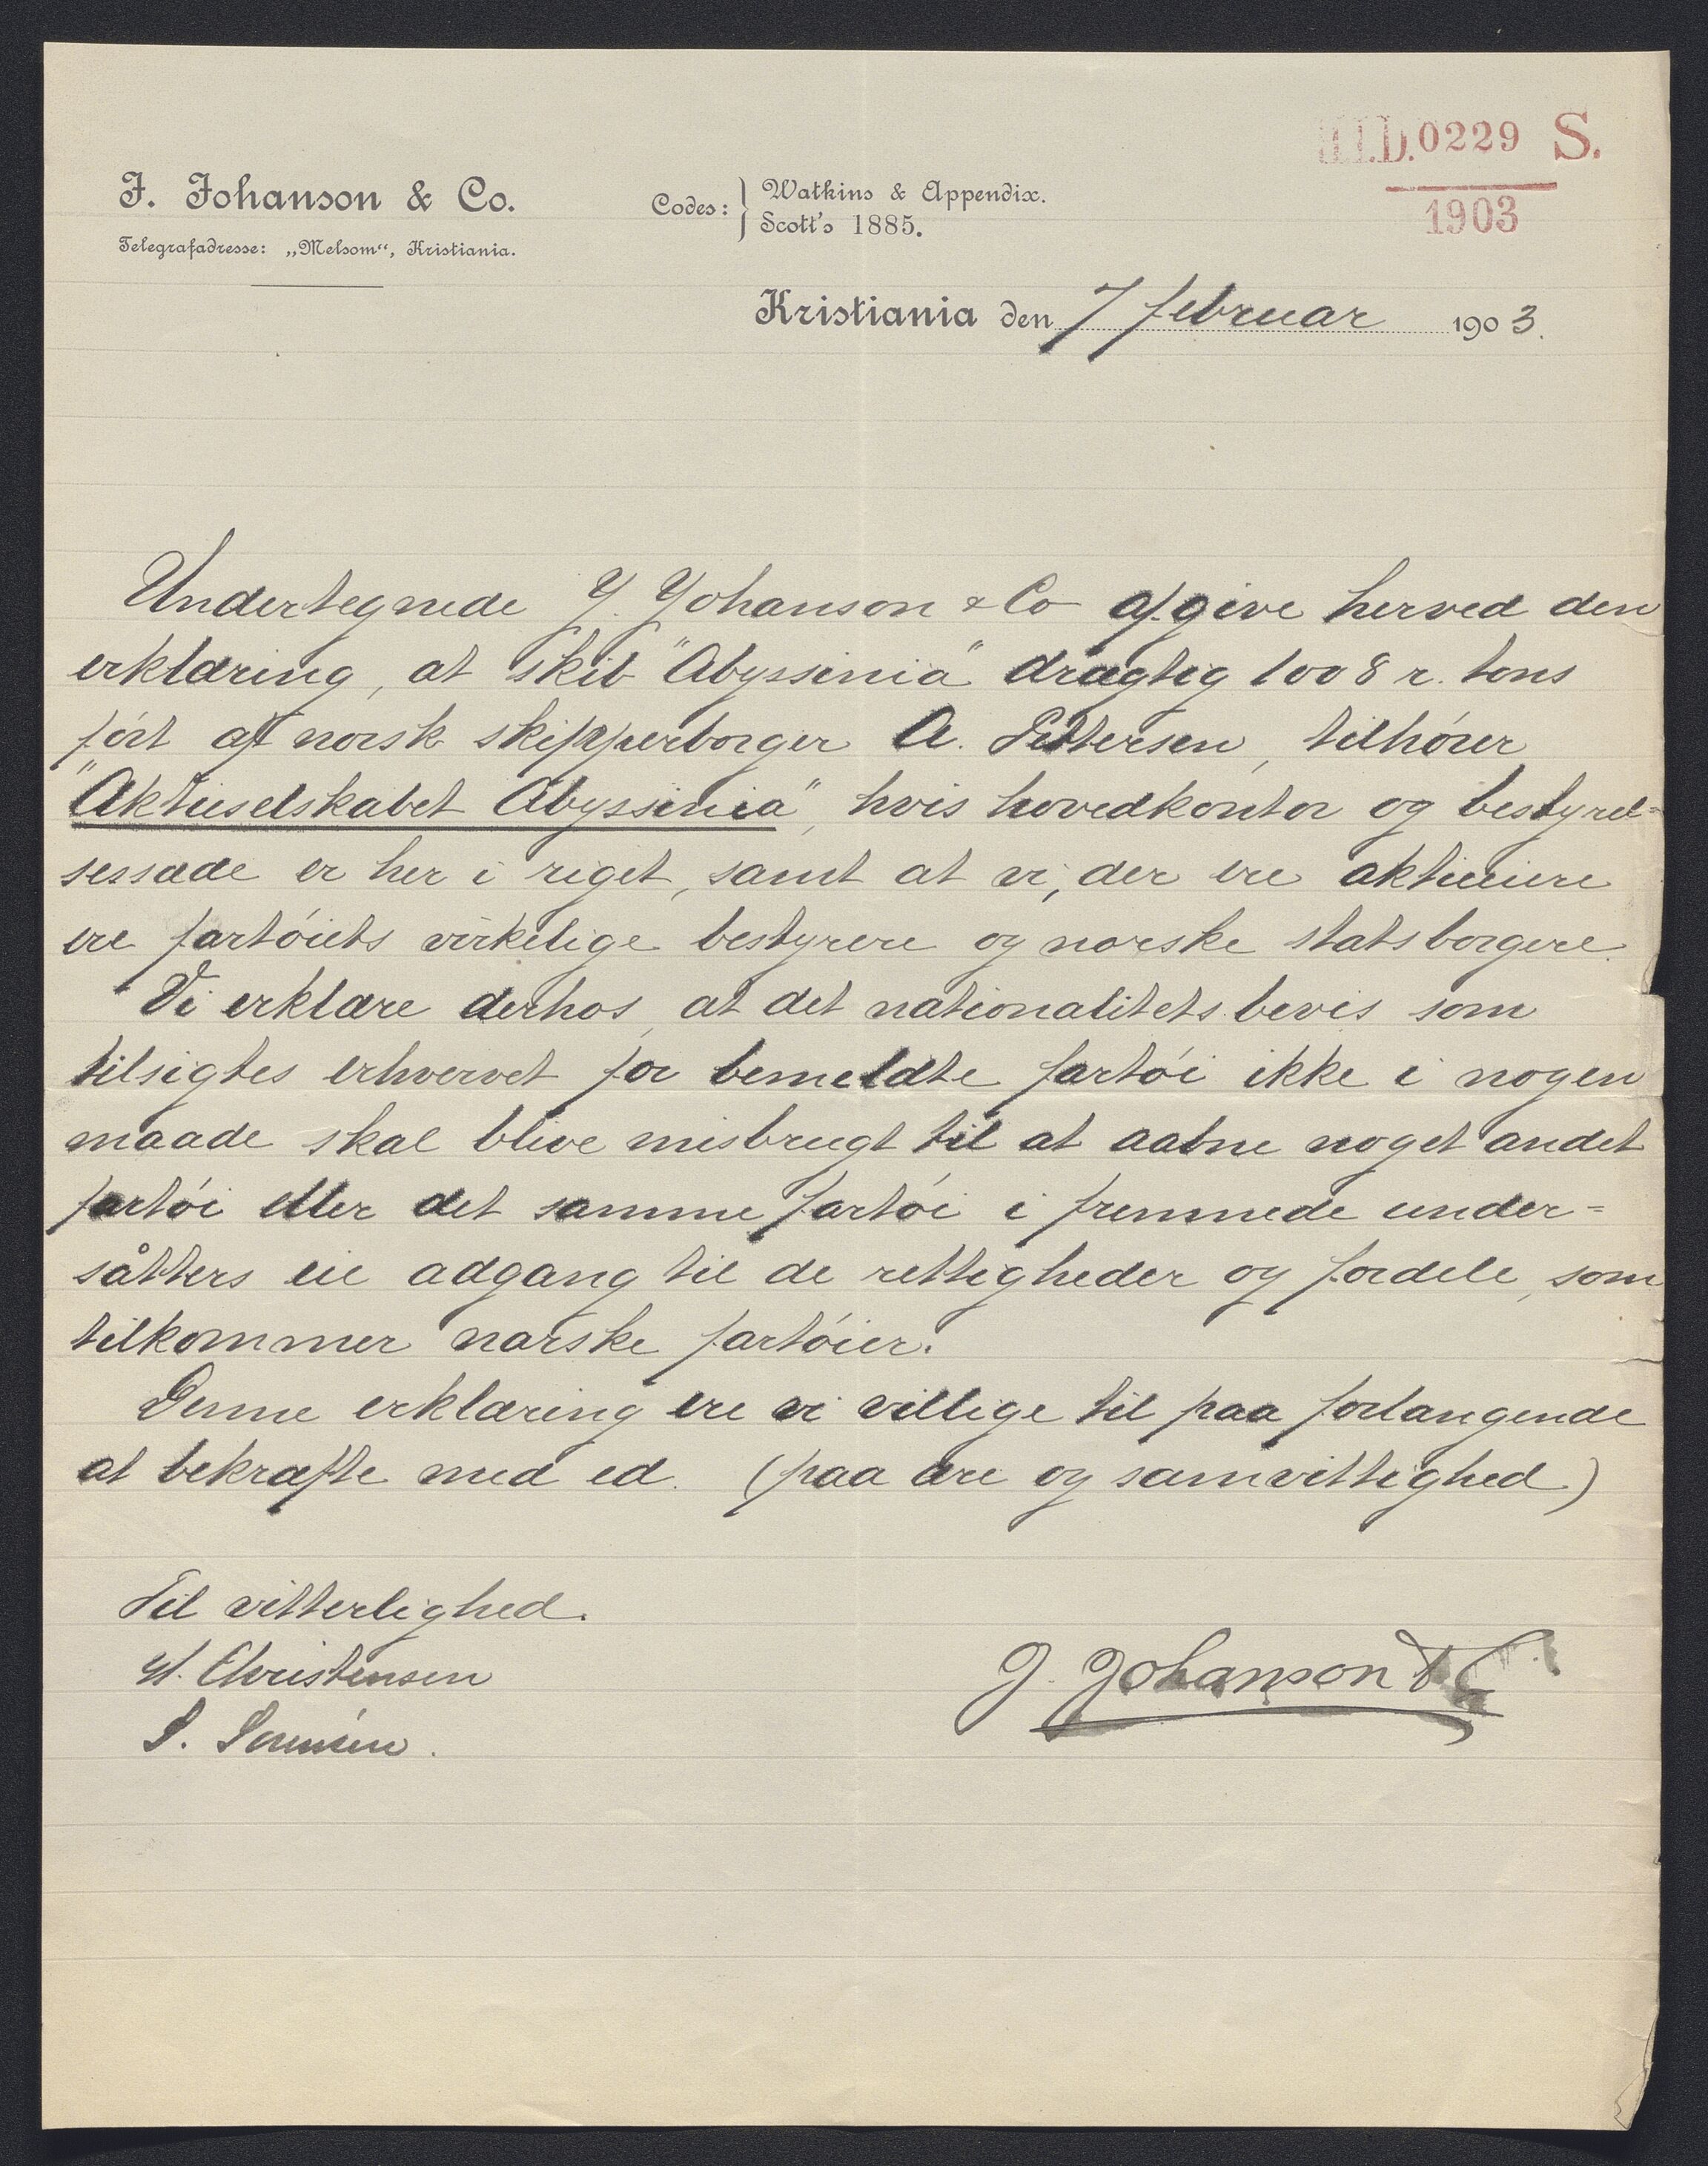 H.I.D. 0229 S.
1903
J. Johanson & Co.
Telegrafadresse: „Melsom“, Kristiania.
Codes: } Watkins & Appendix.
Scott's 1885.
Kristiania den 7 februar 1903.
Undertegnede J. Johanson & Co afgive herved den
erklæring, at skib "Abyssinia" drægtig 1008 r. tons
ført af norsk skipperborger A. Pettersen, tilhører
"Aktieselskabet Abyssinia", hvis hovedkontor og bestyrel=
sessæde er her i riget, samt at vi, der ere aktieeiere
ere fartøiets virkelige bestyrere og norske statsborgere.
Vi erklære derhos, at det nationalitetsbevis som
tilsigtes erhvervet for bemeldte fartøi ikke i nogen
maade skal blive misbrugt til at aabne noget andet
fartøi eller det samme fartøi i fremmede under=
såtters eie adgang til de rettigheder og fordele, som
tilkommer norske fartøier.
Denne erklæring ere vi villige til paa forlangende
at bekræfte med ed. (paa ære og samvittighed)
Til vitterlighed.
Christensen
J. Johanson & Co
S.